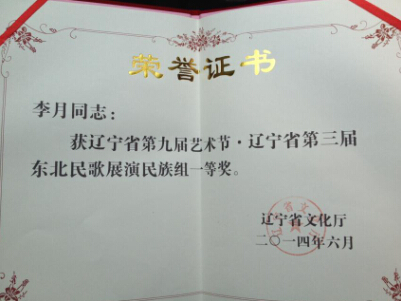 荣誉证书
李月同志：
获辽宁省第九届艺术节·辽宁省第三届
东北民歌展演民族组一等奖。
辽宁省文化厅
二〇一四年六月